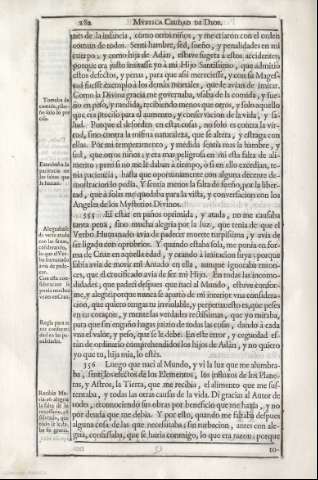 282 MYSTICA CIUDAD DE DIOS.
pues de la infancia, como otros niños, y me criaron con el orden
comun de todos. Senti hambre, sed, sueño, y penalidades en mi
cuerpo; y como hija de Adàn, estuve sugeta à estos accidentes;
porque era justo imitasse yo à mi Hijo Santissimo, que admitiò
estos defectos, y penas, para que assi mereciesse, y con su Mages-
tad fuesse exemplo à los demàs mortales, que le avian de imitar.
Como la Divina gracia me governaba, usaba de la comida, y sue-
ño en peso, y medida, recibiendo menos que otros, y solo aquello
que era preciso para el aumento, y conservacion de la vida, y sa-
lud. Porque el desorden en estas cosas, no solo es contra la vir-
tud, sino contra la misma naturaleza, que se altera, y estraga con
ellas. Por mi temperamento, y medida sentia mas la hambre, y
sed, que otros niños; y era mas peligrosa en mi esta falta de ali-
mento: pero si no me le daban à tiempo, ò si en ello excedian, te-
nia paciencia, hasta que oportunamente con alguna decente de-
mostracion lo pedia. Y sentia menos la falta de sueño, por la liber-
tad, que à solas me quedaba para la vista, y conversacion con los
Angeles de los Mysterios Divinos.
355 El estar en paños oprimida, y atada, no me causaba
tanta pena, sino mucha alegria por la luz, que tenia de que el
Verbo Humanado avia de padecer muerte torpissima, y avia de
ser ligado con oprobrios. Y quando estaba sola, me ponia en for-
ma de Cruz en aquella edad, y orando à imitacion suya; porque
sabia avia de morir mi Amado en ella, aunque ignoraba enton-
ces, que el crucificado avia de ser mi Hijo. En todas las incomo-
didades, que padeci despues que naci al Mundo, estuve confor-
me, y alegre; porque nunca se apartò de mi interior una considera-
cion, que quiero tengas tu inviolable, y perpetua; esto es, que peses
en tu coraçon, y mente las verdades rectissimas, que yo miraba,
para que sin engaño hagas juizio de todas las cosas, dando à cada
una el valor, y peso, que se le debe. En este error, y ceguedad es-
tàn de ordinario comprehendidos los hijos de Adàn, y no quiero
yo que tu, hija mia, lo estès.
356 Luego que naci al Mundo, y vi la luz que me alumbra-
ba, senti los efectos de los Elementos, los influxos de los Plane-
tas, y Astros, la Tierra, que me recibia, el alimento que me sus-
tentaba, y todas las otras causas de la vida. Di gracias al Autor de
todo, reconociendo sus obras por beneficio que me hazia, y no
por deuda que me debia. Y por esto, quando me faltaba despues
alguna cosa de las que necessitaba, sin turbacion, antes con ale-
gria, confessaba, que se hazia conmigo, lo que era razon: porque
to-